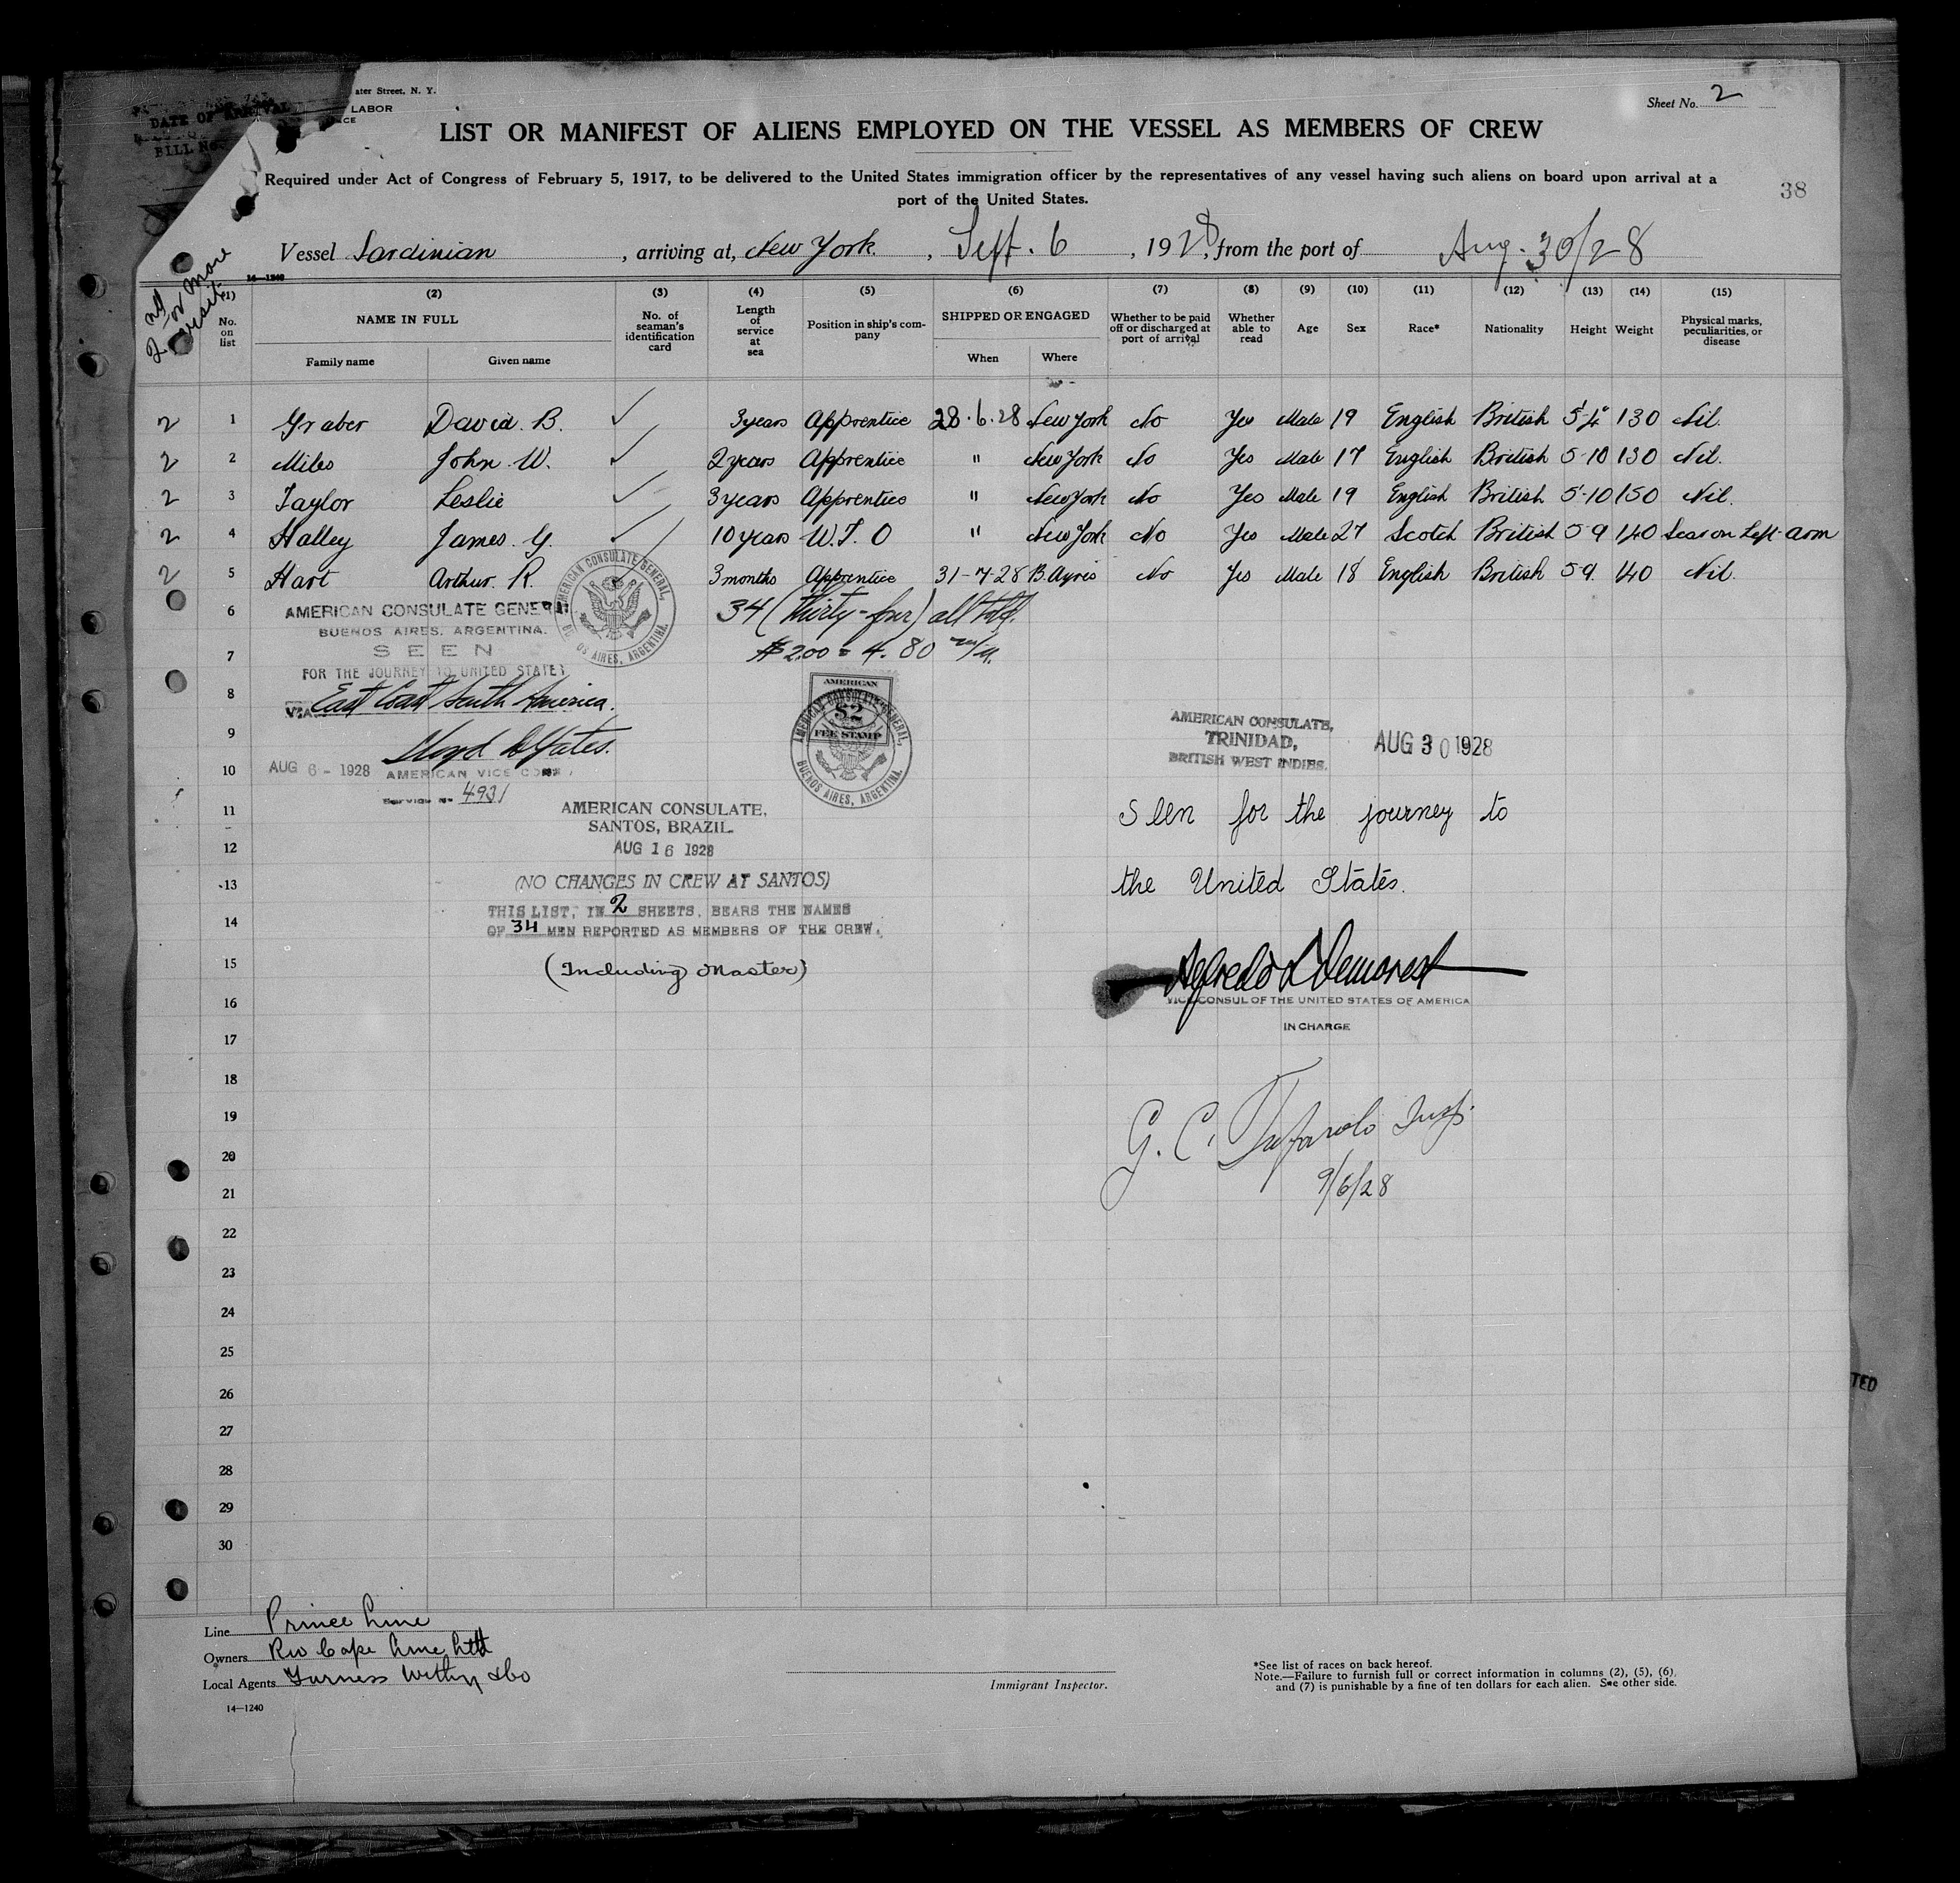 ater Street, N. Y.
LABOR
DATE OF ARRIVAL
BILL No.
Sheet No. 2
LIST OR MANIFEST OF ALIENS EMPLOYED ON THE VESSEL AS MEMBERS OF CREW
Required under Act of Congress of February 5, 1917, to be delivered to the United States immigration officer by the representatives of any vessel having such aliens on board upon arrival at a
port of the United States.
38
Vessel Sardinian, arriving at, New York, Sept. 6, 1928, from the port of Aug. 30/28
14—1240
2 or more
(1) (2) (3) (4) (5) (6) (7) (8) (9) (10) (11) (12) (13) (14) (15)
No. on list NAME IN FULL Family name Given name No. of seaman's identification card Length of service at sea Position in ship's company SHIPPED OR ENGAGED When Where Whether to be paid off or discharged at port of arrival Whether able to read Age Sex Race* Nationality Height Weight Physical marks, peculiarities, or disease
2 1 Graber David. B. ✓ 3 years Apprentice 28.6.28 New York No Yes Male 19 English British 5'-4" 130 Nil.
2 2 Miles John. W. ✓ 2 years Apprentice " New York No Yes Male 17 English British 5-10 130 Nil.
2 3 Taylor Leslie ✓ 3 years Apprentice " New York No Yes Male 19 English British 5-10 150 Nil.
2 4 Halley James. G. ✓ 10 years W.T.O " New York No Yes Male 27 Scotch British 5 9 140 Scar on Left arm
2 5 Hart Arthur. R. 3 months Apprentice 31-7-28 B. Ayres No Yes Male 18 English British 5 9. 140 Nil.
6
7
8
9
10
11
12
13
14
15
16
17
18
19
20
21
22
23
24
25
26
27
28
29
30
AMERICAN CONSULATE GENERAL
BUENOS AIRES. ARGENTINA.
SEEN
FOR THE JOURNEY TO UNITED STATES
VIA East Coast South America.
Lloyd D Yates.
AUG 6 - 1928 AMERICAN VICE CONSUL
Service No 4931
AMERICAN CONSULATE GENERAL, BUENOS AIRES, ARGENTINA.
34 (thirty-four) all told.
$2.00 = 4.80 m/n.
AMERICAN
$2
FEE STAMP
AMERICAN CONSULATE GENERAL, BUENOS AIRES, ARGENTINA.
AMERICAN CONSULATE,
SANTOS, BRAZIL.
AUG 16 1928
(NO CHANGES IN CREW AT SANTOS)
THIS LIST, IN 2 SHEETS, BEARS THE NAMES
OF 34 MEN REPORTED AS MEMBERS OF THE CREW.
(Including Master)
AMERICAN CONSULATE,
TRINIDAD,
BRITISH WEST INDIES.
AUG 30 1928
Seen for the journey to
the United States.
Alfredo L Demorest
VICE CONSUL OF THE UNITED STATES OF AMERICA
IN CHARGE
G. C. Insp.
9/6/28
TED
Line Prince Line
Owners Rio Cape Line Ltd
Local Agents Furness Withy & Co
14—1240
Immigrant Inspector.
*See list of races on back hereof.
Note.—Failure to furnish full or correct information in columns (2), (5), (6),
and (7) is punishable by a fine of ten dollars for each alien. See other side.